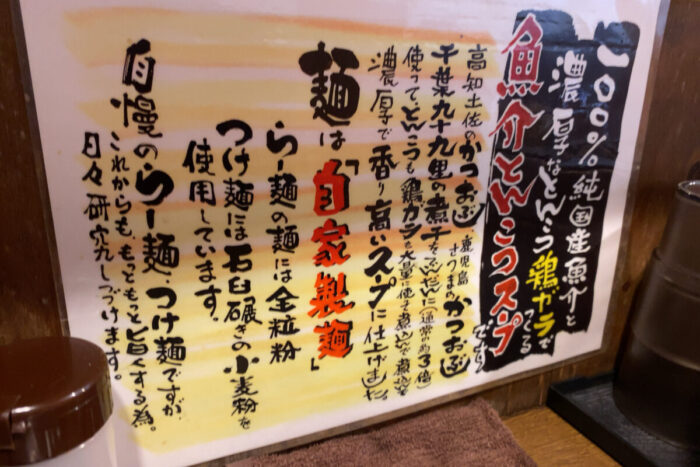 一〇〇%純国産魚介と
濃厚なとんこつ鶏ガラで
とってる
魚介とんこつスープ
高知土佐のかつおぶし、鹿児島さつまのかつおぶし
千葉九十九里の煮干をふんだんに通常の約3倍
使って、とんこつも鶏ガラも大量に使って煮込んで
濃厚で香り高いスープに仕上げました。
麺は「自家製麺」
らー麺の麺には全粒粉
つけ麺には石臼碾きの小麦粉を
使用しています。
自慢のらー麺・つけ麺ですが、
これからも、もっともっと旨くする為、
日々研究しつづけます。